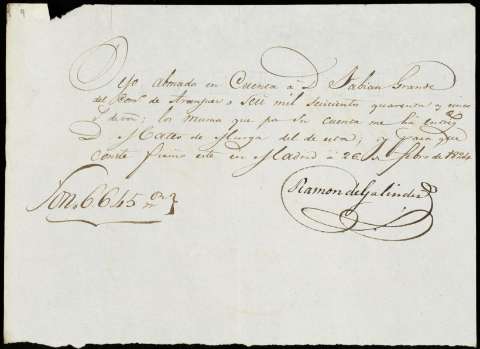 Dejo abonado en Cuenca à Dn Fabian Grande
del Comº de Aranjuez seis mil seiscientos quarenta y cinco
rs de von; los mismos que por su cuenta me ha
Dn Mateo de Murga del de esta; y para que
conste firmo este en Madrid à 26 de Febro de 1824
Ramon de Galindez
Son 6645 rs